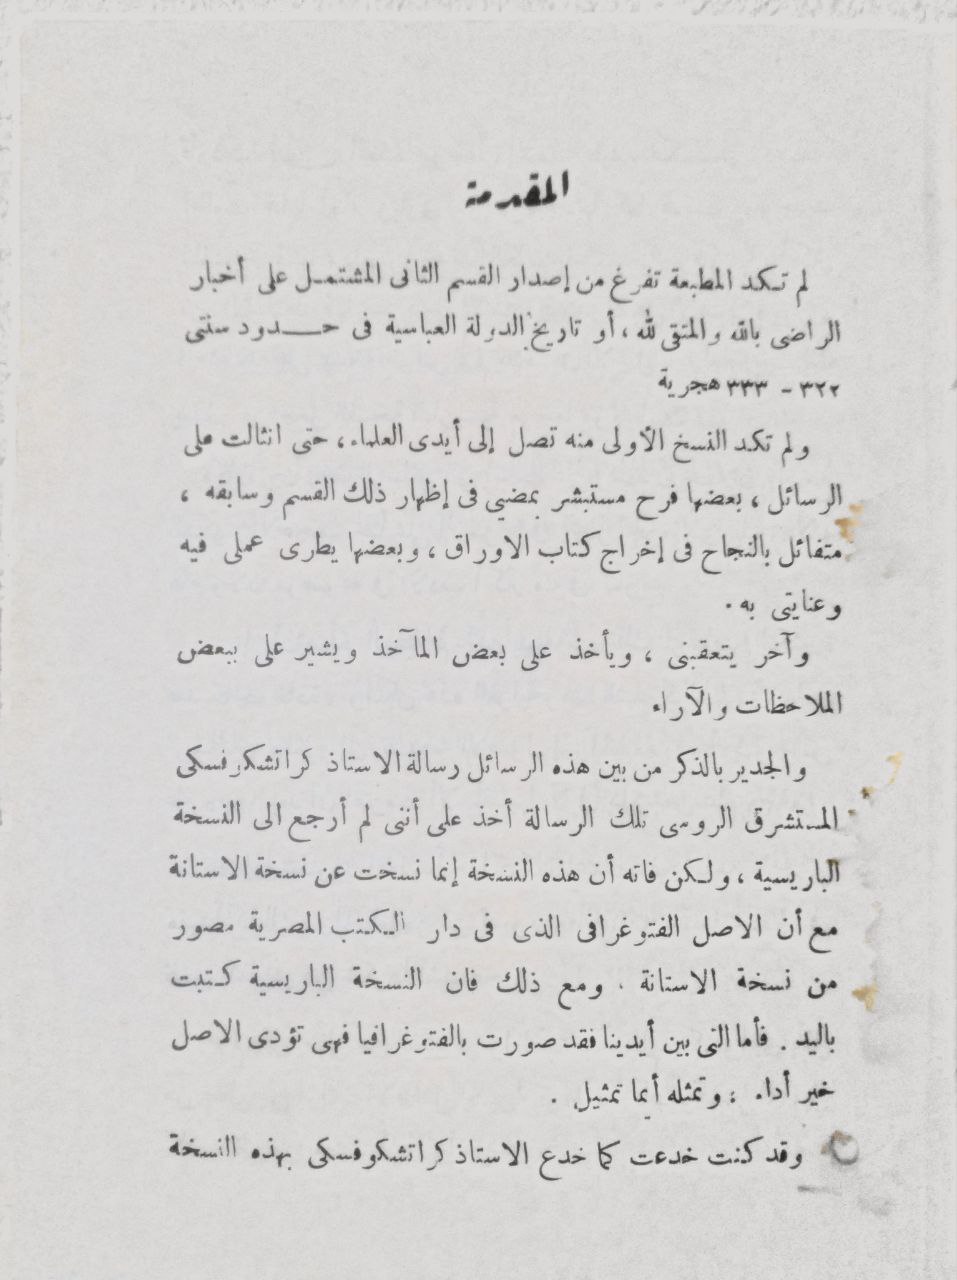 المقدمة
لم تكد المطبعة تفرغ من إصدار القسم الثانى المشتمل على أخبار
الراضى بالله والمتقى لله ، أو تاريخ الدولة العباسية فى حدود سنتى
٣٢٢ - ٣٣٣ هجرية
ولم تكد النسخ الأولى منه تصل إلى أيدى العلماء ، حتى انثالت على
الرسائل ، بعضها فرح مستبشر بمضيى فى إظهار ذلك القسم وسابقه ،
متفائل بالنجاح فى إخراج كتاب الاوراق ، وبعضها يطرى عملى فيه
وعنايتى به .
وآخر يتعقبنى ، ويأخذ على بعض المآخذ ويشير على ببعض
الملاحظات والآراء
والجدير بالذكر من بين هذه الرسائل رسالة الاستاذ كراتشكوفسكى
المستشرق الروسى تلك الرسالة أخذ على أننى لم أرجع الى النسخة
الباريسية ، ولكن فاته أن هذه النسخة إنما نسخت عن نسخة الاستانة
مع أن الاصل الفتوغرافى الذى فى دار الكتب المصرية مصور
من نسخة الاستانة . ومع ذلك فان النسخة الباريسية كتبت
باليد . فأما التى بين أيدينا فقد صورت بالفتوغرافيا فهى تؤدى الاصل
خير أداء ، وتمثله أيما تمثيل .
وقد كنت خدعت كما خدع الاستاذ كراتشكوفسكى بهذه النسخة